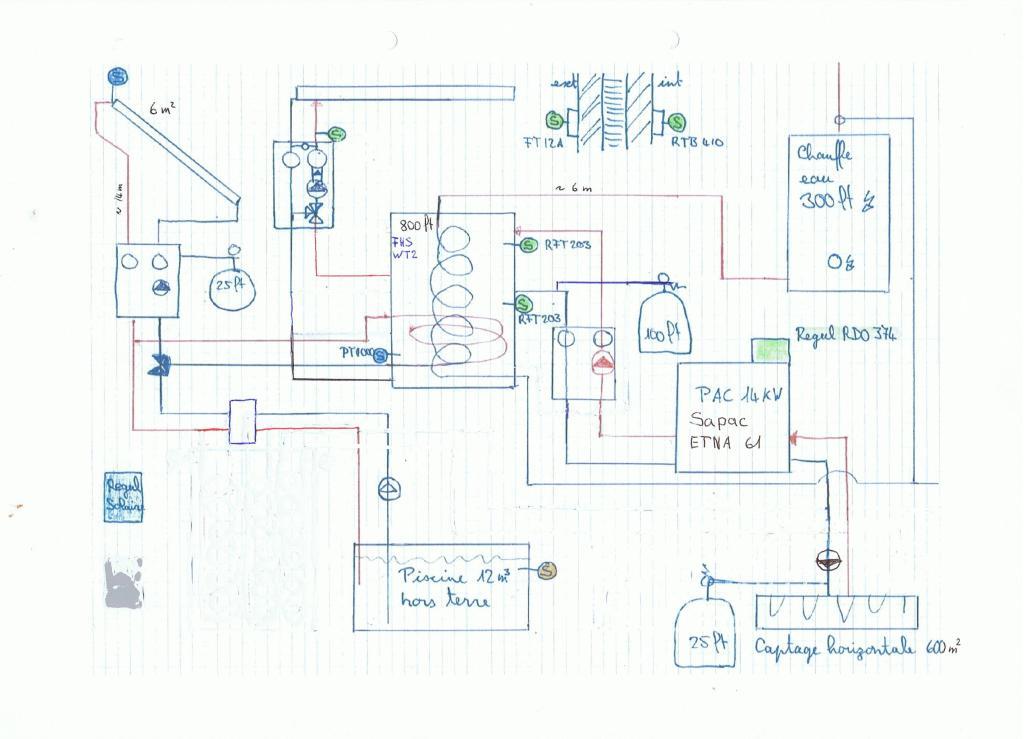 S
6 m²
ext
int
S
S
FT 12A
RTB 410
S
Chauffe
eau
300 ft
~ 14m
~ 6 m
800 ft
FHS
WT2
S
RFT 203
25 ft
S
RFT 203
100 ft
Regul RDO 374
PT1000
S
PAC 14 KW
Sapac
ETNA 61
Regul
Solaire
S
Piscine 12 m³
hors terre
25 ft
Captage horizontale 600 m²